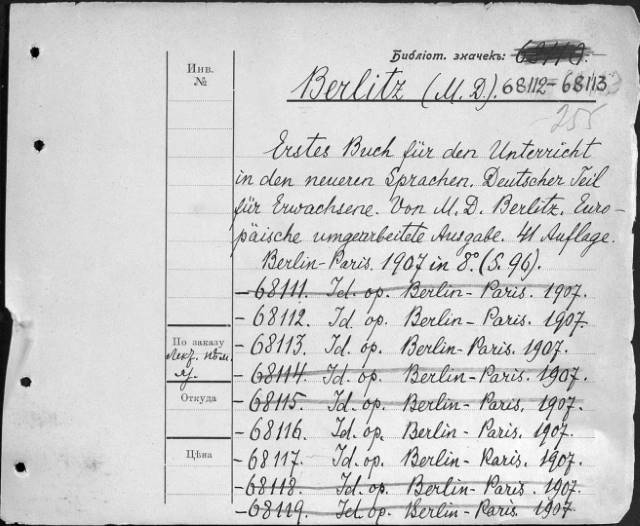 Библіот. значекъ:
Berlitz (M. D.). 68112-68113
255
Инв.
№
Erstes Buch für den Unterricht
in den neueren Sprachen. Deutscher Teil
für Erwachsene. Von M. D. Berlitz. Euro-
päische umgearbeitete Ausgabe. 41 Auflage.
Berlin-Paris. 1907 in 8°. (S. 96).
-68111. Id. op. Berlin-Paris. 1907.
-68112. Id. op. Berlin-Paris. 1907.
-68113. Id. op. Berlin-Paris. 1907.
-68114. Id. op. Berlin-Paris. 1907.
-68115. Id. op. Berlin-Paris. 1907.
-68116. Id. op. Berlin-Paris. 1907.
-68117. Id. op. Berlin-Paris. 1907.
-68118. Id. op. Berlin-Paris. 1907.
-68119. Id. op. Berlin-Paris. 1907.
По заказу
Лект. нѣм.
яз.
Откуда
Цѣна